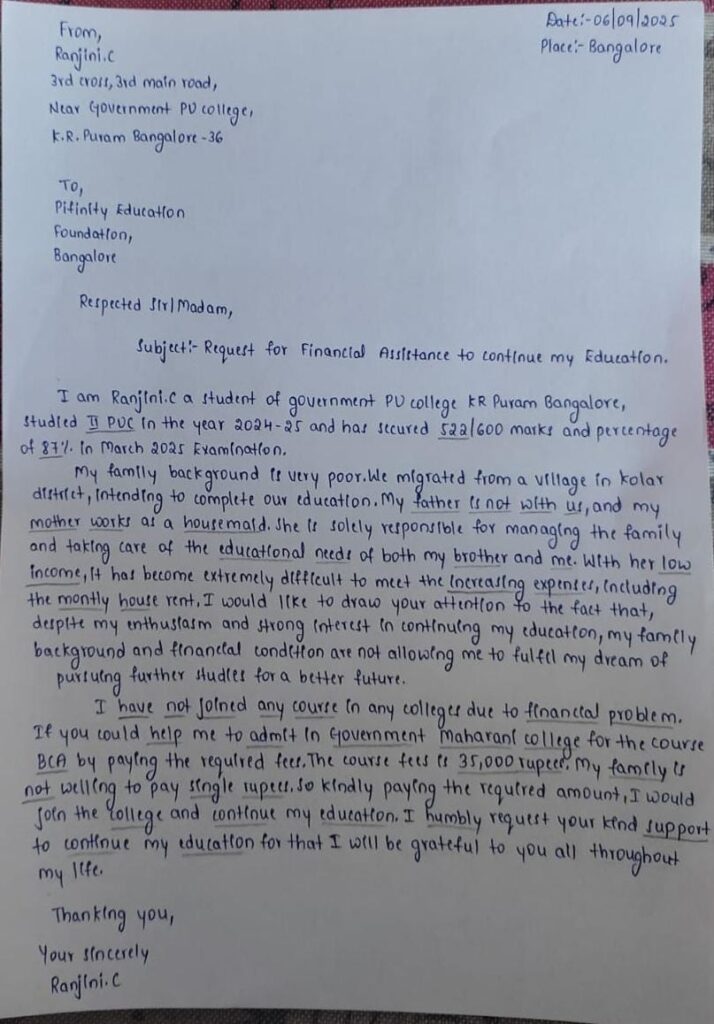 Date:-06/09/2025
Place:- Bangalore
From,
Ranjini.C
3rd cross, 3rd main road,
Near Government PU college,
K.R. Puram Bangalore -36
To,
Pifinity Education
Foundation,
Bangalore
Respected Sir/Madam,
Subject:- Request for Financial Assistance to continue my Education.
I am Ranjini.C a student of government PU college KR Puram Bangalore,
studied II PUC in the year 2024-25 and has secured 522/600 marks and percentage
of 87% in March 2025 Examination.
My family background is very poor. We migrated from a village in kolar
district, intending to complete our education. My father is not with us, and my
mother works as a housemaid. She is solely responsible for managing the family
and taking care of the educational needs of both my brother and me. With her low
income, it has become extremely difficult to meet the increasing expenses, including
the montly house rent. I would like to draw your attention to the fact that,
despite my enthusiasm and strong interest in continuing my education, my family
background and financial condition are not allowing me to fulfil my dream of
pursuing further studies for a better future.
I have not joined any course in any colleges due to financial problem.
If you could help me to admit in Government Maharani college for the course
BCA by paying the required fees. The course fees is 35,000 rupees. My family is
not welling to pay single rupees. So kindly paying the required amount, I would
join the college and continue my education. I humbly request your kind support
to continue my education for that I will be grateful to you all throughout
my life.
Thanking you,
Your sincerely
Ranjini.C